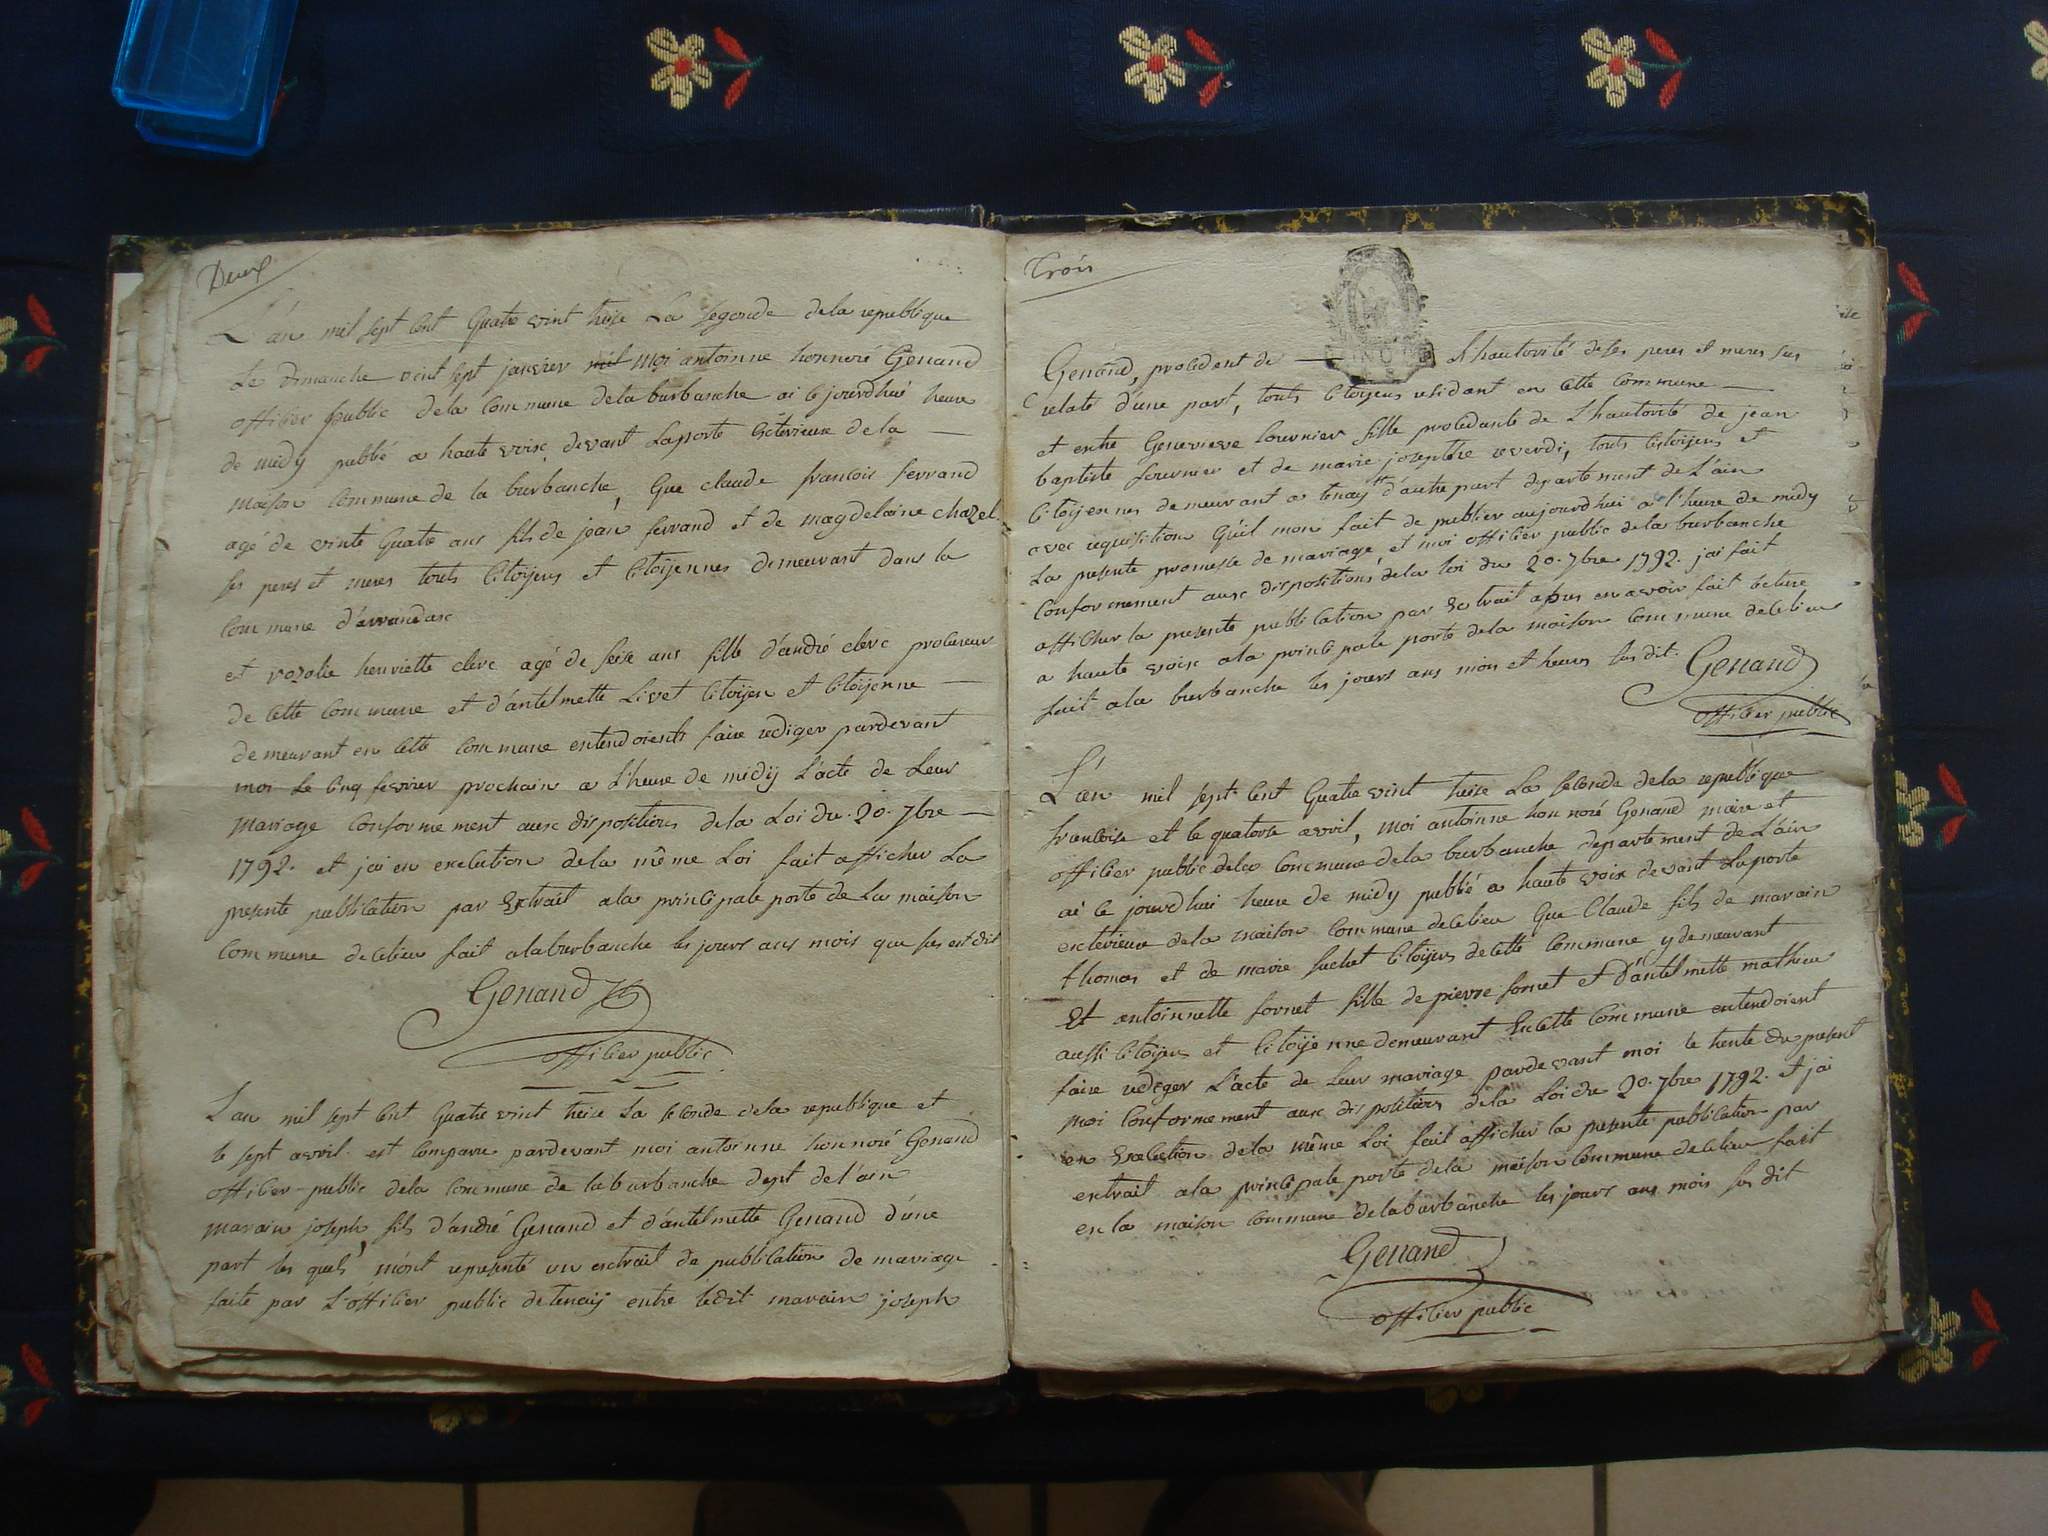 Deux
L'an mil sept cent quatre vint treise La segonde de la republique
Le dimanche vint sept janvier moi antoinne honnoré Genand
officier public de la commune de la burbanche ai ce jourdhui heure
de midy publié a haute voix devant La porte Exterieure de la
maison commune de la burbanche, que claude francois ferrand
agé de vinte quatre ans fils de jean ferrand et de magdelaine chazel
ses peres et meres touts citoijens et citoijennes demeurant dans la
commune d'arrandax
et rozalie henriette clerc agé de seise ans fille d'andré clerc procureur
de cette commune et d'antelmette Livet citoijen et citoijenne
demeurant en cette commune entendoients faire rediger pardevant
moi Le cinq fevrier prochain a L'heure de midij L'acte de Leur
mariage conformement aux dispositions de la Loi du 20. 7bre
1792. et jai en execution de la même Loi fait afficher La
presente publication par Extrait a la principale porte de La maison
commune de ce lieu fait a la burbanche les jours ans mois que sus est dit
Genand
officier public
L'an mil sept cent quatre vint treise La seconde de la republique et
le sept avril est comparu pardevant moi antoinne honnoré Genand
officier public de la commune de la burbanche dept de l'ain
marain joseph, fils d'andré Genand et d'antelmette Genand d'une
part les quels m'ont representé un extrait de publication de mariage
faite par L'officier public de tenaij entre ledit marain joseph
Trois
Genand, procedent de L'hautorité de ses peres et meres sus
relaté d'une part, touts citoijens residant en cette commune
et entre Genevieve fournier fille procedante de L'hautorité de jean
baptiste fournier et de marie josephte reverdi, touts citoijens et
citoijennes demeurant a tenaij d'autre part departement de L'ain
avec requisition qu'il mon fait de publier aujourdhui a l'heure de midy
La presente promesse de mariage, et moi officier public de la burbanche
conformement aux dispositions de la loi du 20. 7bre 1792. jai fait
afficher la presente publication par Extrait apres en avoir fait lecture
a haute voix a la principale porte de la maison commune de ce lieu
fait a la burbanche les jours ans mois et heures sus dit.
Genand
officier public
L'an mil sept cent quatre vint treise La seconde de la republique
francoise et le quatorze avril, moi antoinne honnoré Genand maire et
officier public de la commune de la burbanche departement de L'ain
ai ce jourdhui heure de midy publié a haute voix devant La porte
exterieure de la maison commune de ce lieu que Claude fils de marain
thomas et de marie suchet citoijens de cette commune y demeurant
Et antoinnette fornet fille de pierre fornet et d'antelmette mathieu
aussi citoijens et citoijenne demeurant En cette commune entendoient
faire rediger L'acte de Leur mariage pardevant moi le trente du present
moi conformement aux dispositions de la Loi du 20. 7bre 1792. et jai
en Execution de la même Loi fait afficher la presente publication par
extrait a la principale porte de la maison commune de ce lieu fait
en la maison commune de la burbanche les jours ans mois sus dit
Genand
officier public